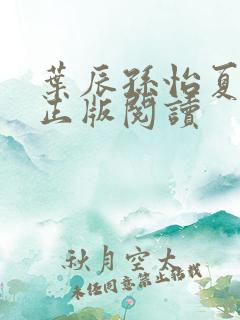 葉辰孫怡夏
正版閱讀
秋月空大
未经同意禁止搭载